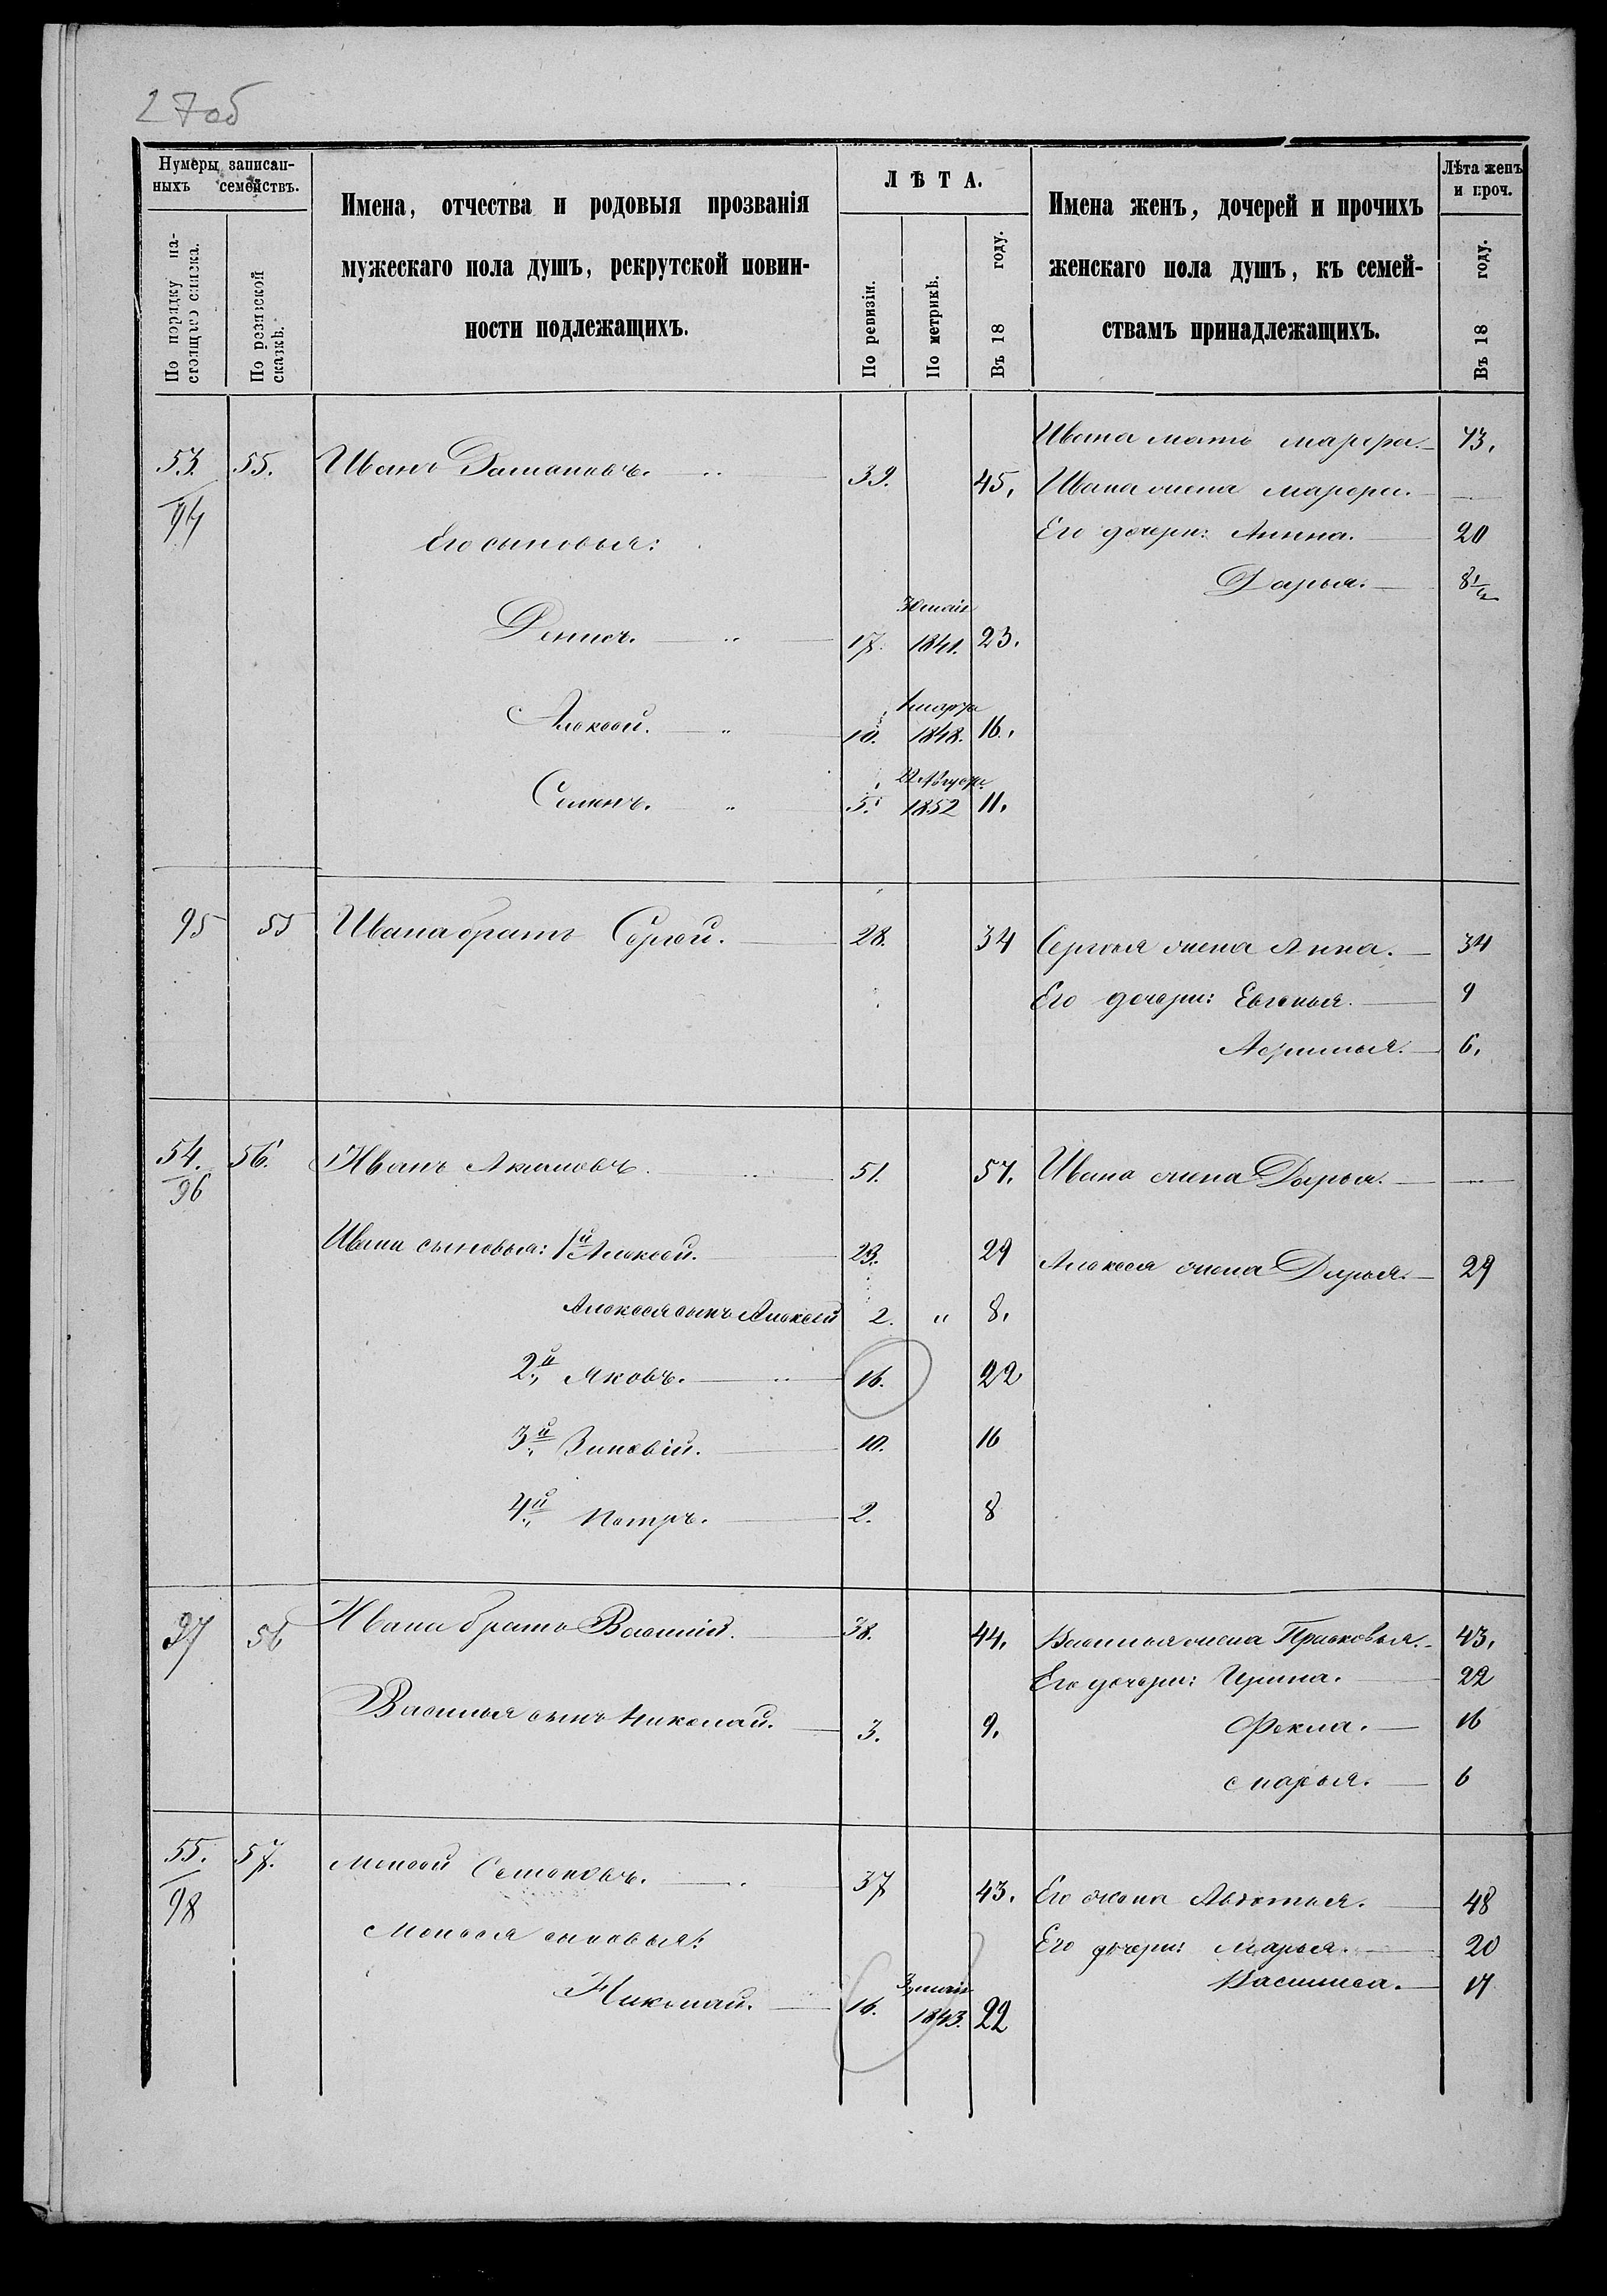 27об
Нумеры записан-
ныхъ семействъ.
По порядку на-
стоящаго списка.
По ревизской
сказкѣ.
Имена, отчества и родовыя прозванія
мужескаго пола душъ, рекрутской повин-
ности подлежащихъ.
ЛѢТА.
По ревизіи.
По метрикѣ.
Въ 18 году.
Имена женъ, дочерей и прочихъ
женскаго пола душъ, къ семей-
ствамъ принадлежащихъ.
Лѣта женъ
и проч.
Въ 18 году.
Ивана мать Марфа. 73.
53. 55. Иванъ 39. 45. Ивана жена Марфа. —
94
Его сыновья: Его дочери: Анна. 20
Дарья. 8 1/2
30 мая
Денисъ. 17. 1841. 23.
1 марта
Алексей. 10. 1848. 16.
22 Августа
Семенъ. 5. 1852 11.
95 55 Ивана братъ Сергей. 28. 34 Сергея жена Анна. 34
Его дочери: Евгенья. 9
6.
54. 56. Иванъ Акимовъ. 51. 57. Ивана жена Дарья. —
96
Ивана сыновья: 1й Алексей. 23. 29 Алексея жена Дарья. 29
Алексея сынъ Алексей 2. " 8.
2й Яковъ. 16. 22
3й Зиновій. 10. 16
4й Петръ. 2. 8
97 56 Ивана братъ Василій. 38. 44. Василья жена Прасковья. 43.
Его дочери: Ирина. 22
Василья сынъ Николай. 3. 9. Фекла. 16
Марья. 6
55. 57. Моисей Семеновъ. 37 43. Его жена Авдотья. 48
98
Моисея сыновья: Его дочери: Марья. 20
Василиса. 17
мая
Николай. 16. 1843. 22